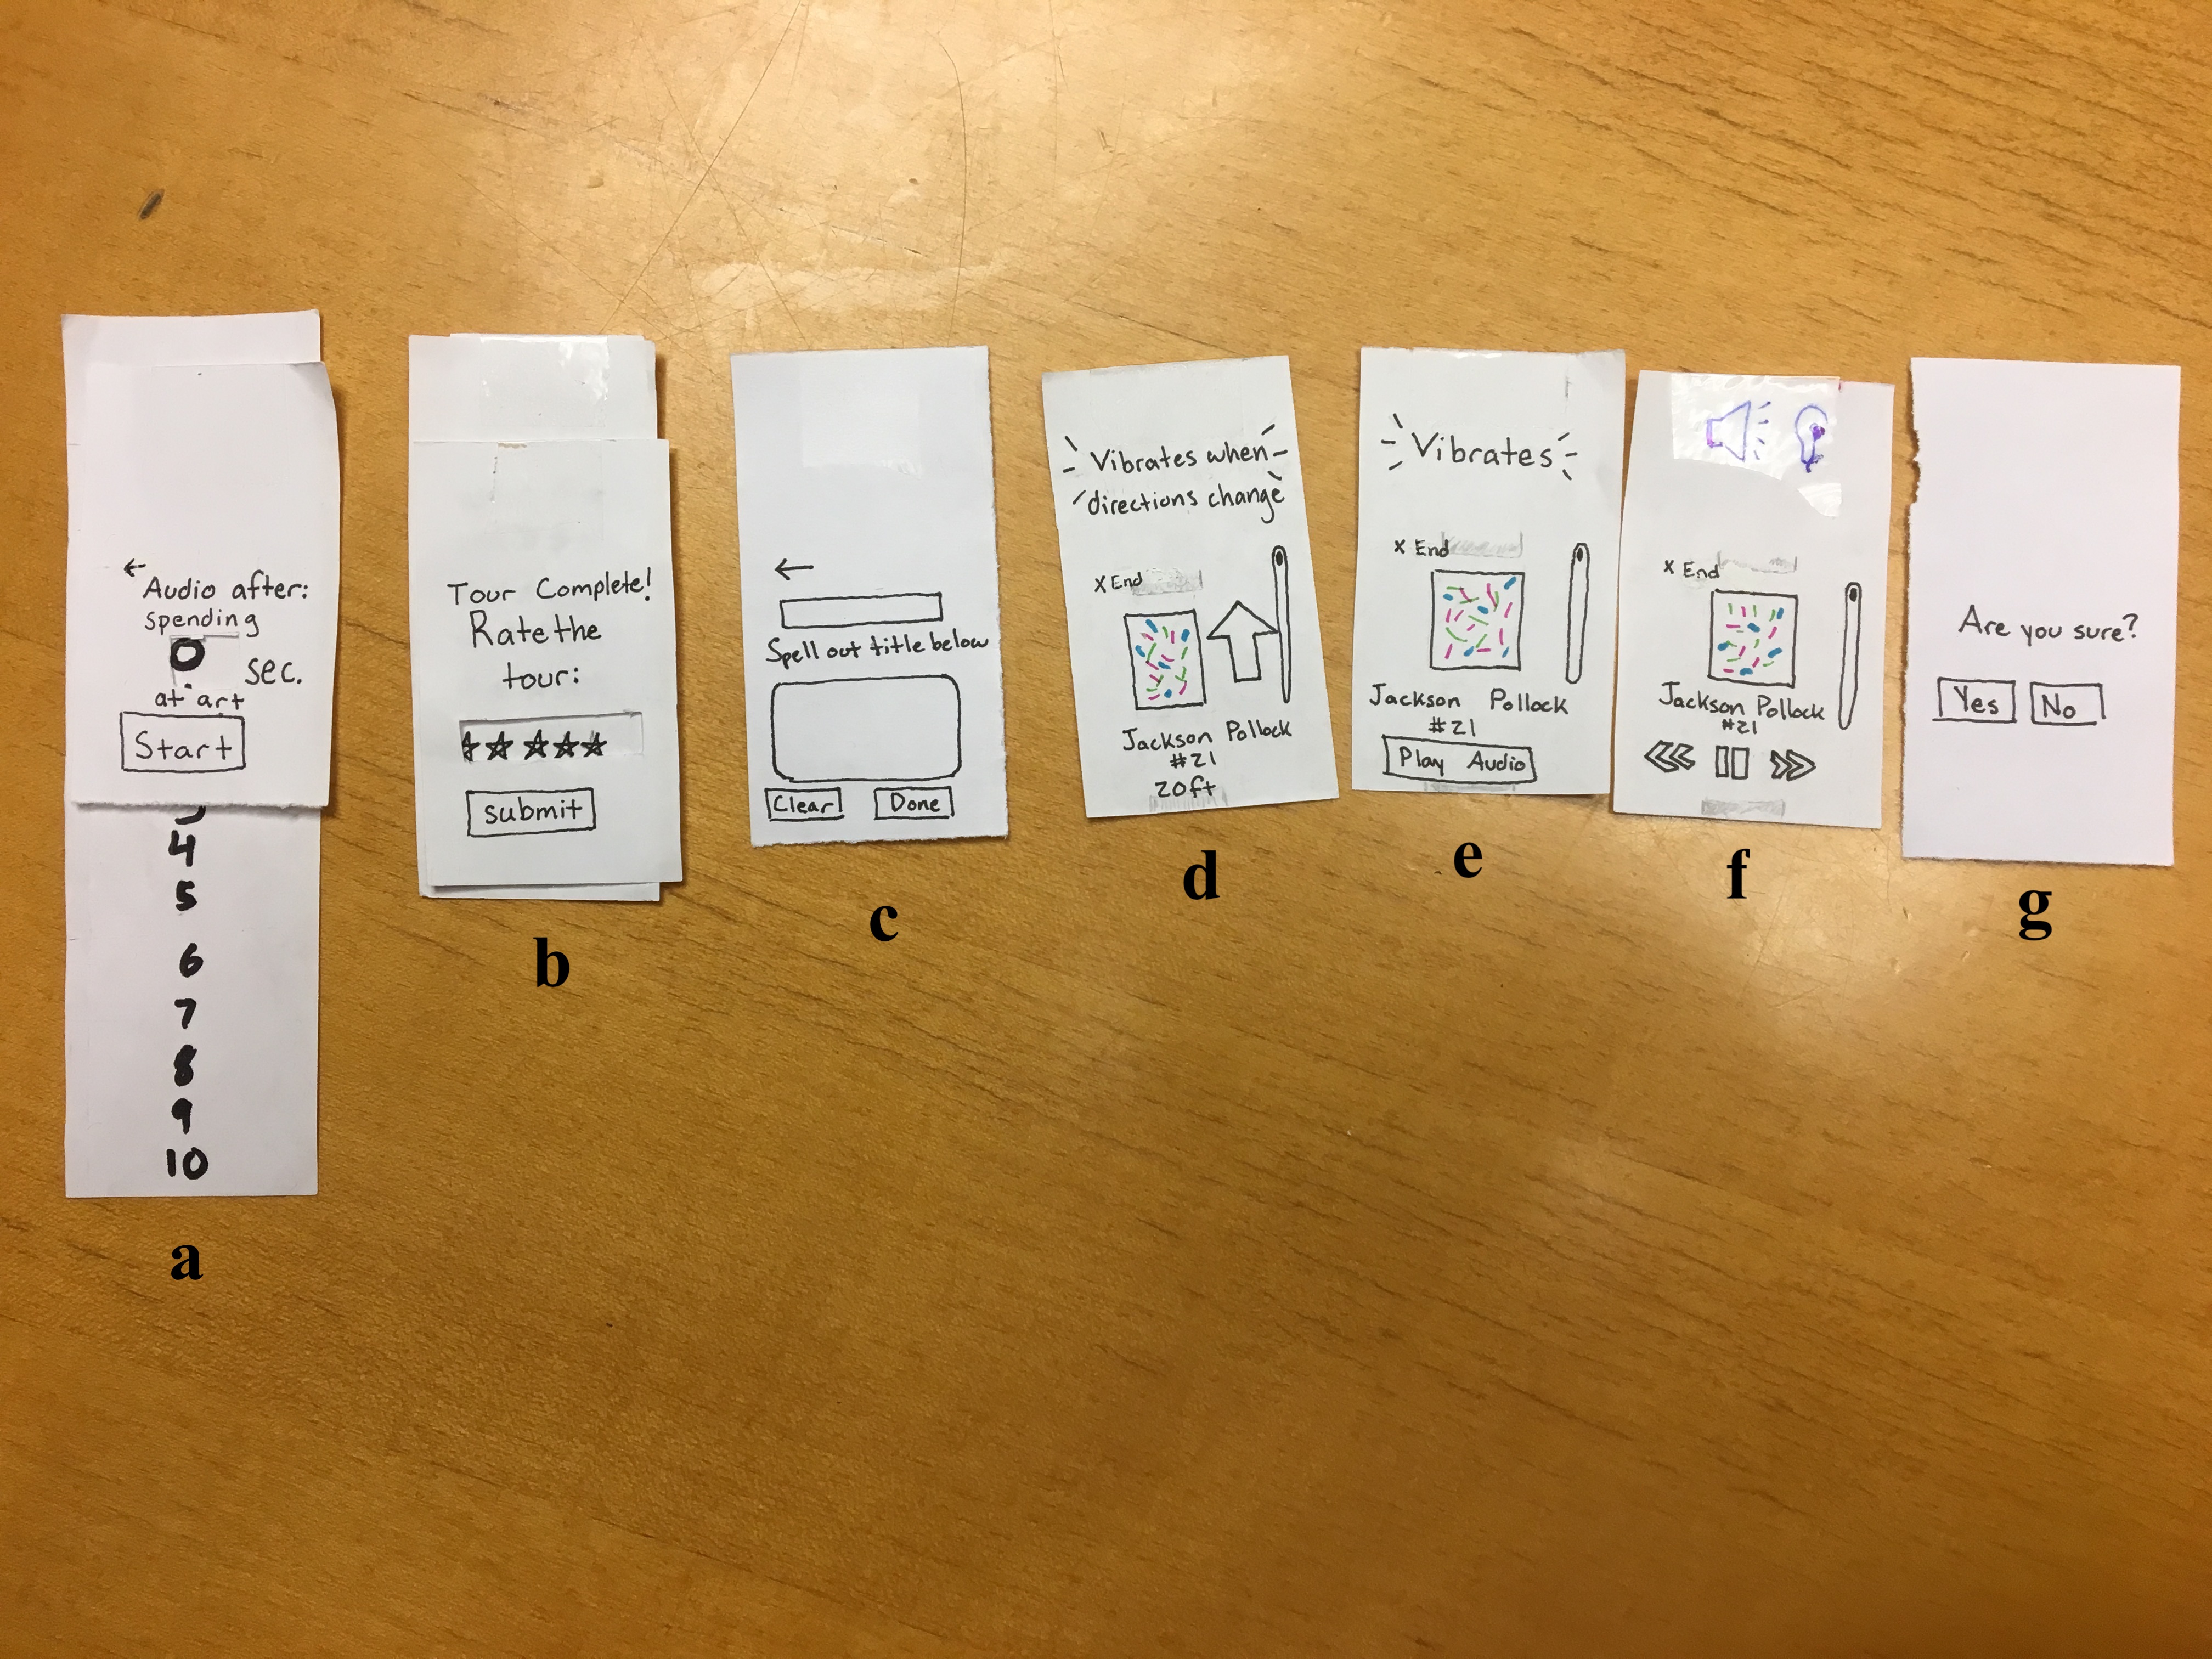 ← Audio after:
spending
0 sec.
at art
Start
4
5
6
7
8
9
10
a
Tour Complete!
Rate the
tour:
submit
b
Spell out title below
Clear Done
c
Vibrates when
directions change
x End
Jackson Pollock
#21
20ft
d
Vibrates
x End
Jackson Pollock
#21
Play Audio
e
x End
Jackson Pollock
#21
f
Are you sure?
Yes No
g